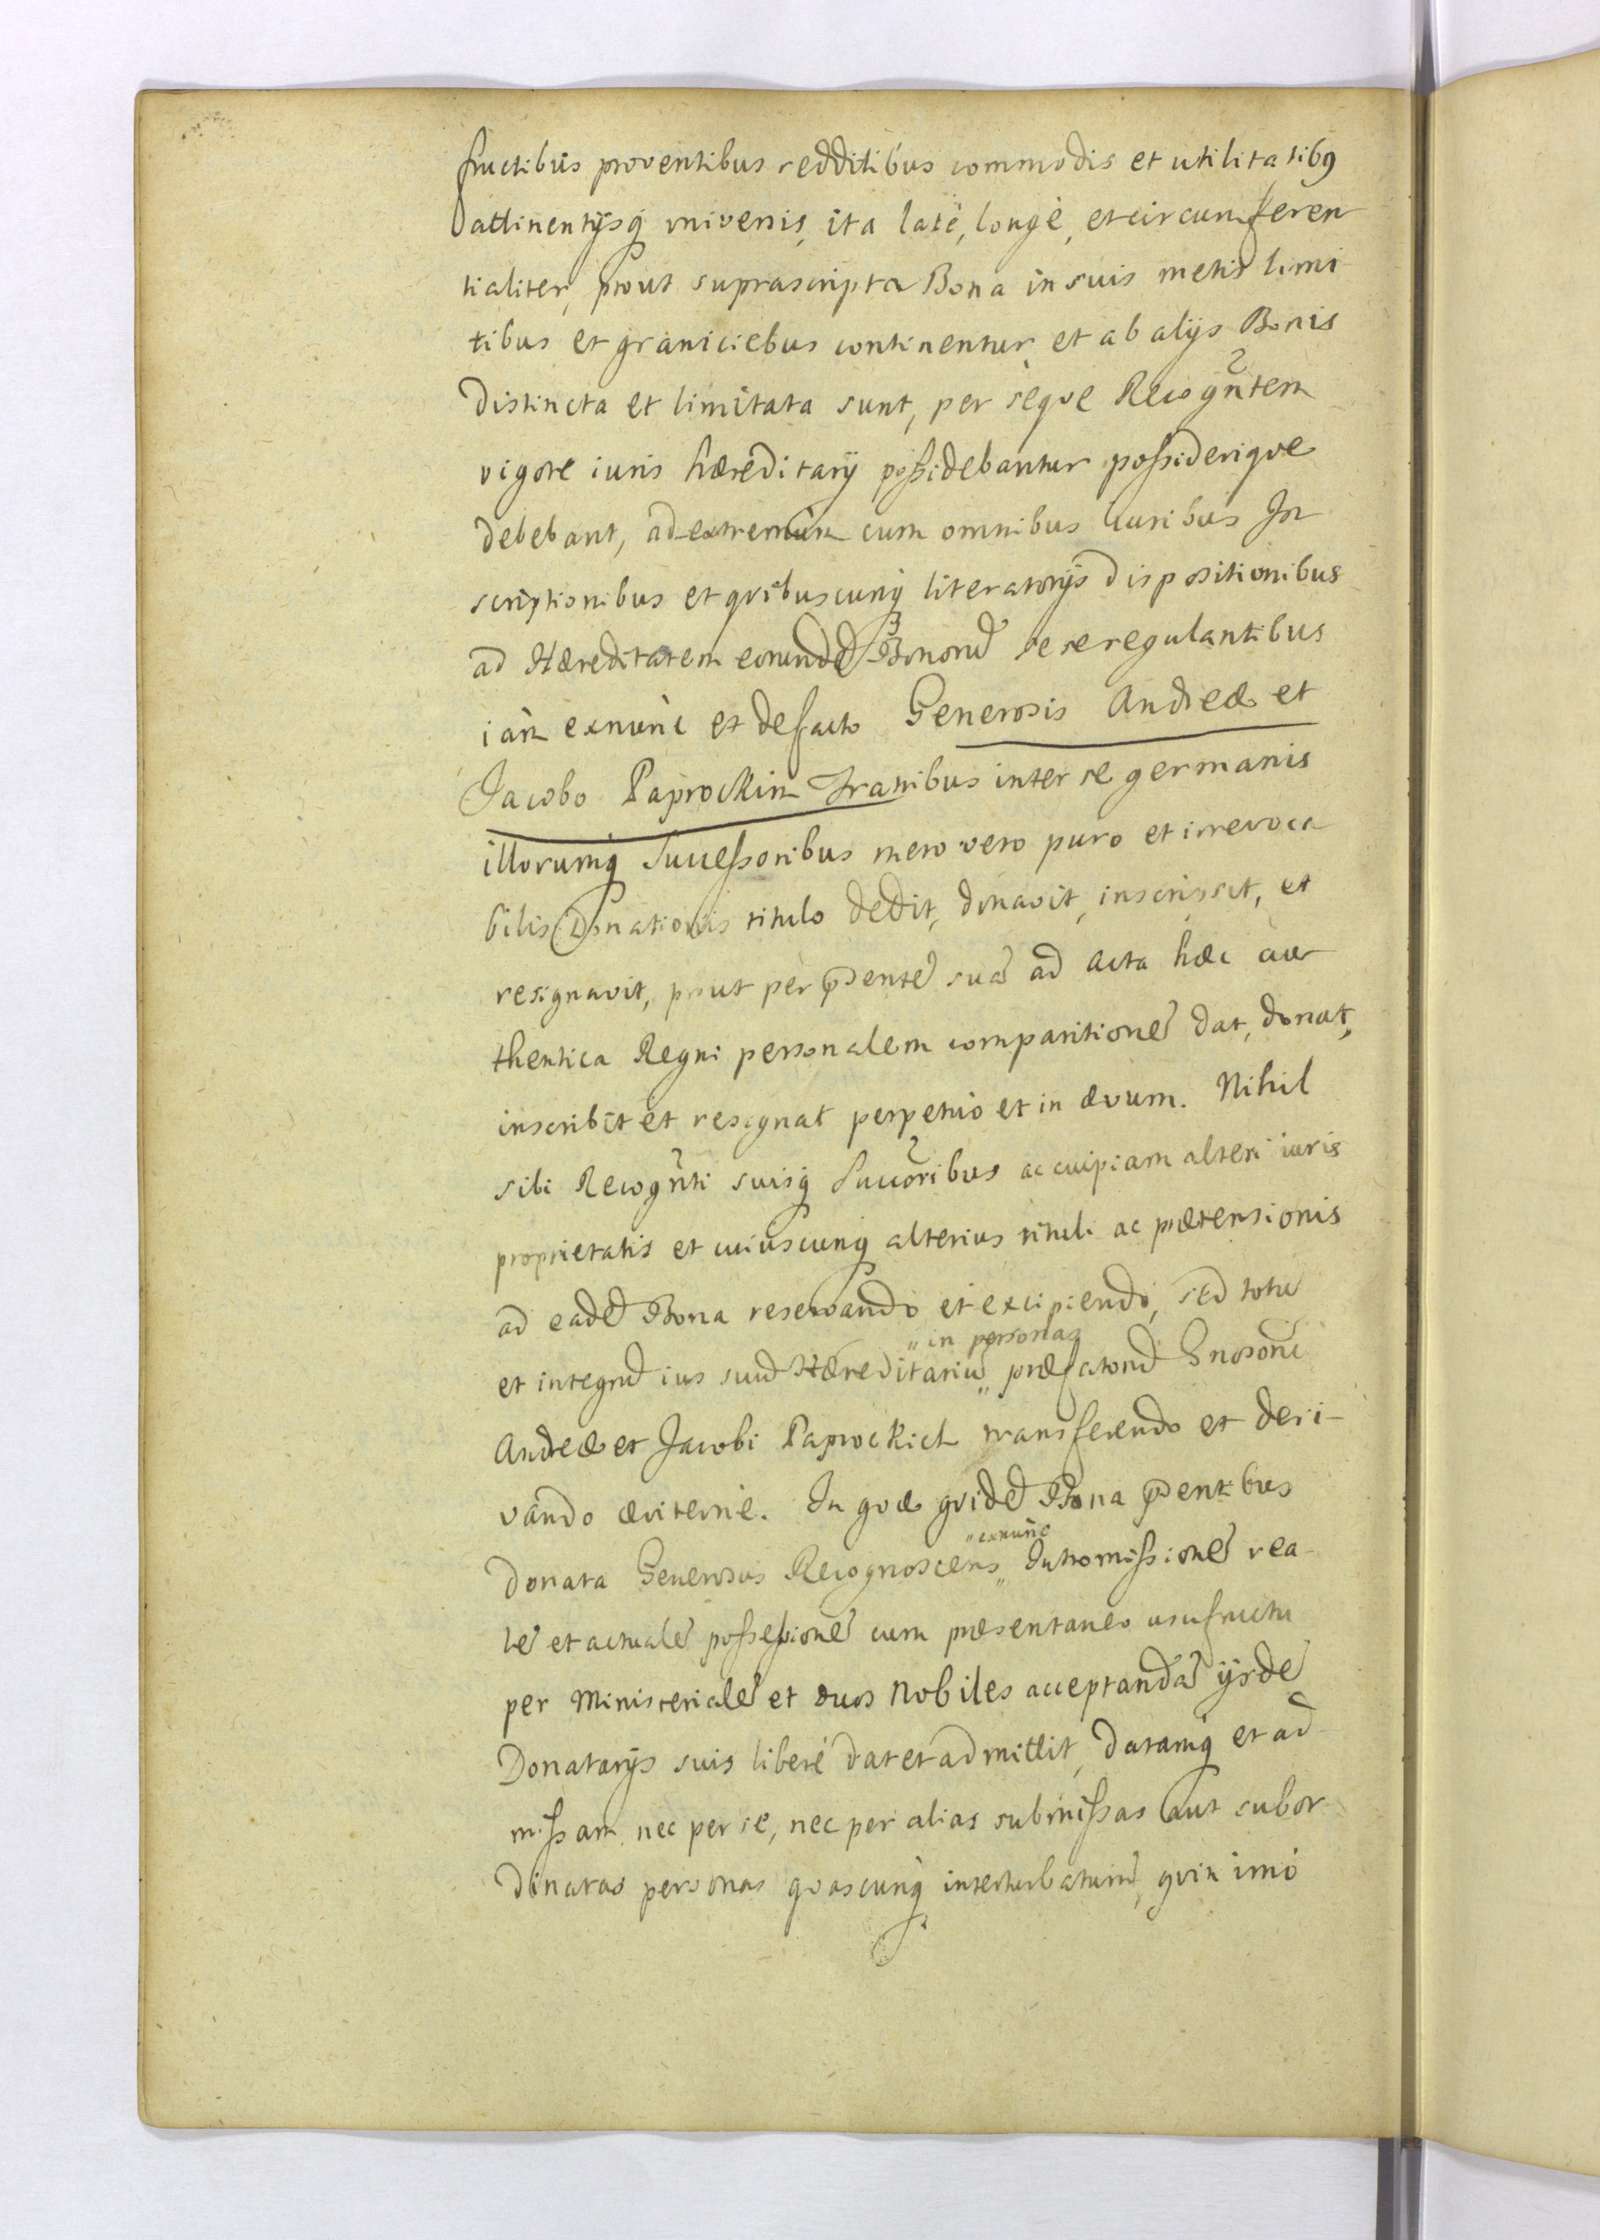 fructibus proventibus redditibus commodis et utilitatibꝰ
attinentijsq̃ universis, ita latè, longè, et circumferen
tialiter, prout suprascripta Bona in suis metis limi
tibus et graniciebus continentur, et ab alijs Bonis
distincta et limitata sunt, per seqve Recogñtem
vigore iuris hæreditarij possidebantur possideriqve
debebant, ad extremùm cum omnibus iuribus In
scriptionibus et qvibuscunq̃ literatorijs dispositionibus
ad Hæreditatem eorundẽ Bonorũ se se regulantibus
iàm exnunc et defacto Generosis Andreæ et
Jacobo Paprockim Fratribus inter se germanis
illorumq̃ Successoribus mero vero puro et irrevoca
bilis Donationis titulo dedit, donavit, inscripsit, et
resignavit, prout per p̃sentẽ suã ad Acta hæc au
thentica Regni personalem comparitionẽ dat, donat,
inscribit et resignat perpetuò et in ævum. Nihil
sibi Recogñti suisq̃ Succõribus ac cuipiam alteri iuris
proprietatis et cuiuscunq̃ alterius tituli ac prætensionis
ad eadẽ Bona reservando et excipiendo, sed totũ
" in personas
et integrũ ius suũ Hæreditariũ " præfatorũ Gnosorũ
Andreæ et Jacobi Paprockich transferendo et deri-
vando æviternè. In qvæ qvidẽ Bona p̃sentibus
" exnunc
donata Generosus Recognoscens " Intromissionẽ rea-
lẽ et actualẽ possessionẽ cum præsentaneo usufructu
per Ministerialẽ et duos Nobiles acceptandã ijsdẽ
Donatarijs suis liberè dat et admittit, datamq̃ et ad
missam nec per se, nec per alias submissas aut subor
dinatas personas qvascunq̃ interturbaturũ, qvin imò